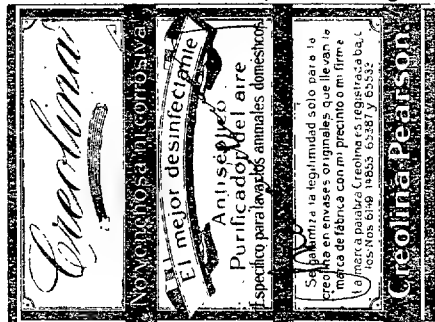 Creolina
No venenosa ni corrosiva
El mejor desinfectante
Antiséptico
Purificador del aire
Especifico para lavar los animales domésticos
Se garantiza la legitimidad solo para la
creolina en envases originales que llevan la
marca de fábrica con mi precinto o mi firma
La marca palabra Creolina es registrada baj.
los Nos 14853 65387 y 65533
Creolina Pearson.